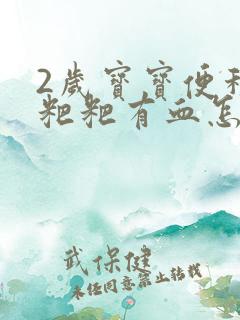 2歲寶寶便秘
粑粑有血怎
武保健
未经同意禁止转载